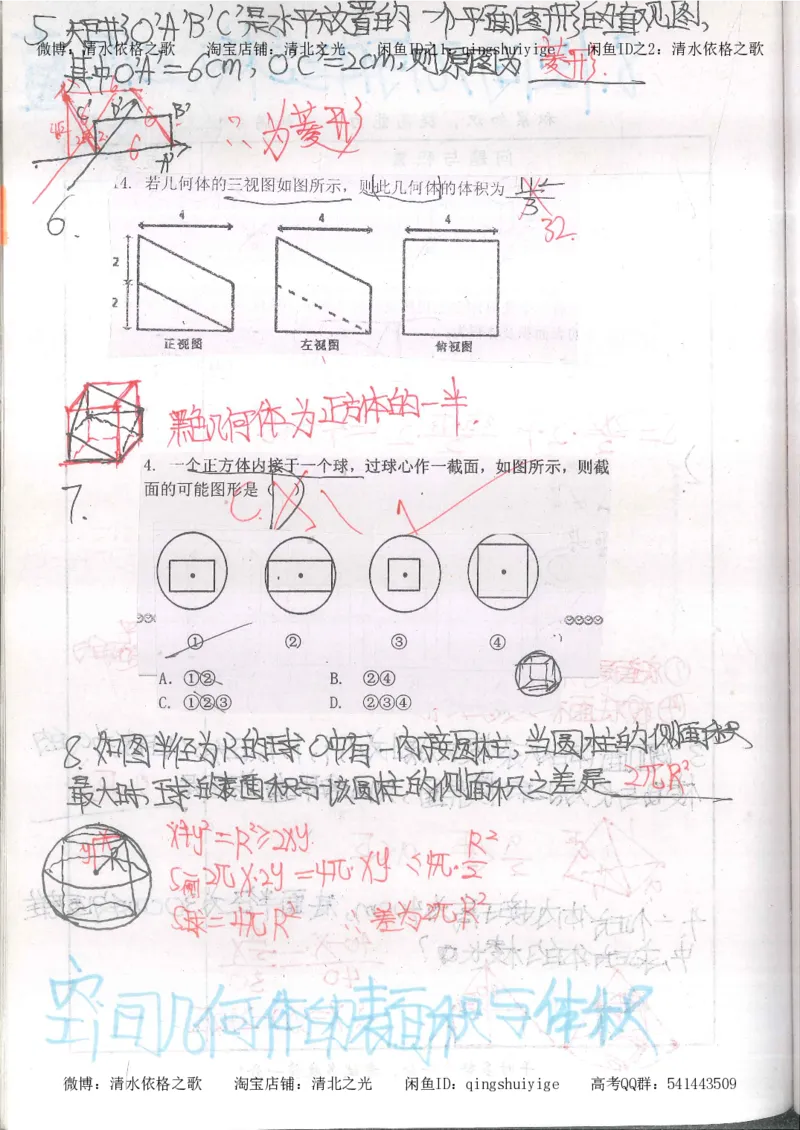 5. 矩形O'A'B'C'是水平放置的一个平面图形的直观图,
微博：清水依格之歌 淘宝店铺：清北之光 闲鱼ID之1：qingshuiyige 闲鱼ID之2：清水依格之歌
其中O'A'=6cm, O'C'=2cm,则原图为 菱形.
∴为菱形
6.
14. 若几何体的三视图如图所示，则此几何体的体积为
32.
4 4 4
2
2
正视图 左视图 俯视图
黑色几何体为正方体的一半.
7.
4. 一个正方体内接于一个球，过球心作一截面，如图所示，则截
面的可能图形是（ ）
C.
① ② ③ ④
A. ①② B. ②④
C. ①②③ D. ②③④
8. 如图半径为R的球O中有一内接圆柱,当圆柱的侧面积
最大时,球的表面积与该圆柱的侧面积之差是 2πR²
x²+y²=R²≥2xy
S侧=2πx·2y=4π·xy≤4π·R²/2
S球=4πR² ∴差为2πR²
空间几何体的表面积与体积
微博：清水依格之歌 淘宝店铺：清北之光 闲鱼ID：qingshuiyige 高考QQ群：541443509